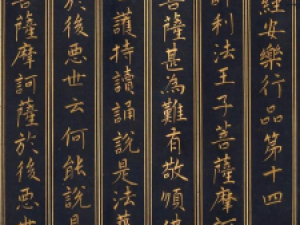 經安樂行品第十四
師利法王子菩薩摩訶
菩薩甚為難有敬順佛
護持讀誦說是法華
於後惡世云何能說是
菩薩摩訶薩於後惡世